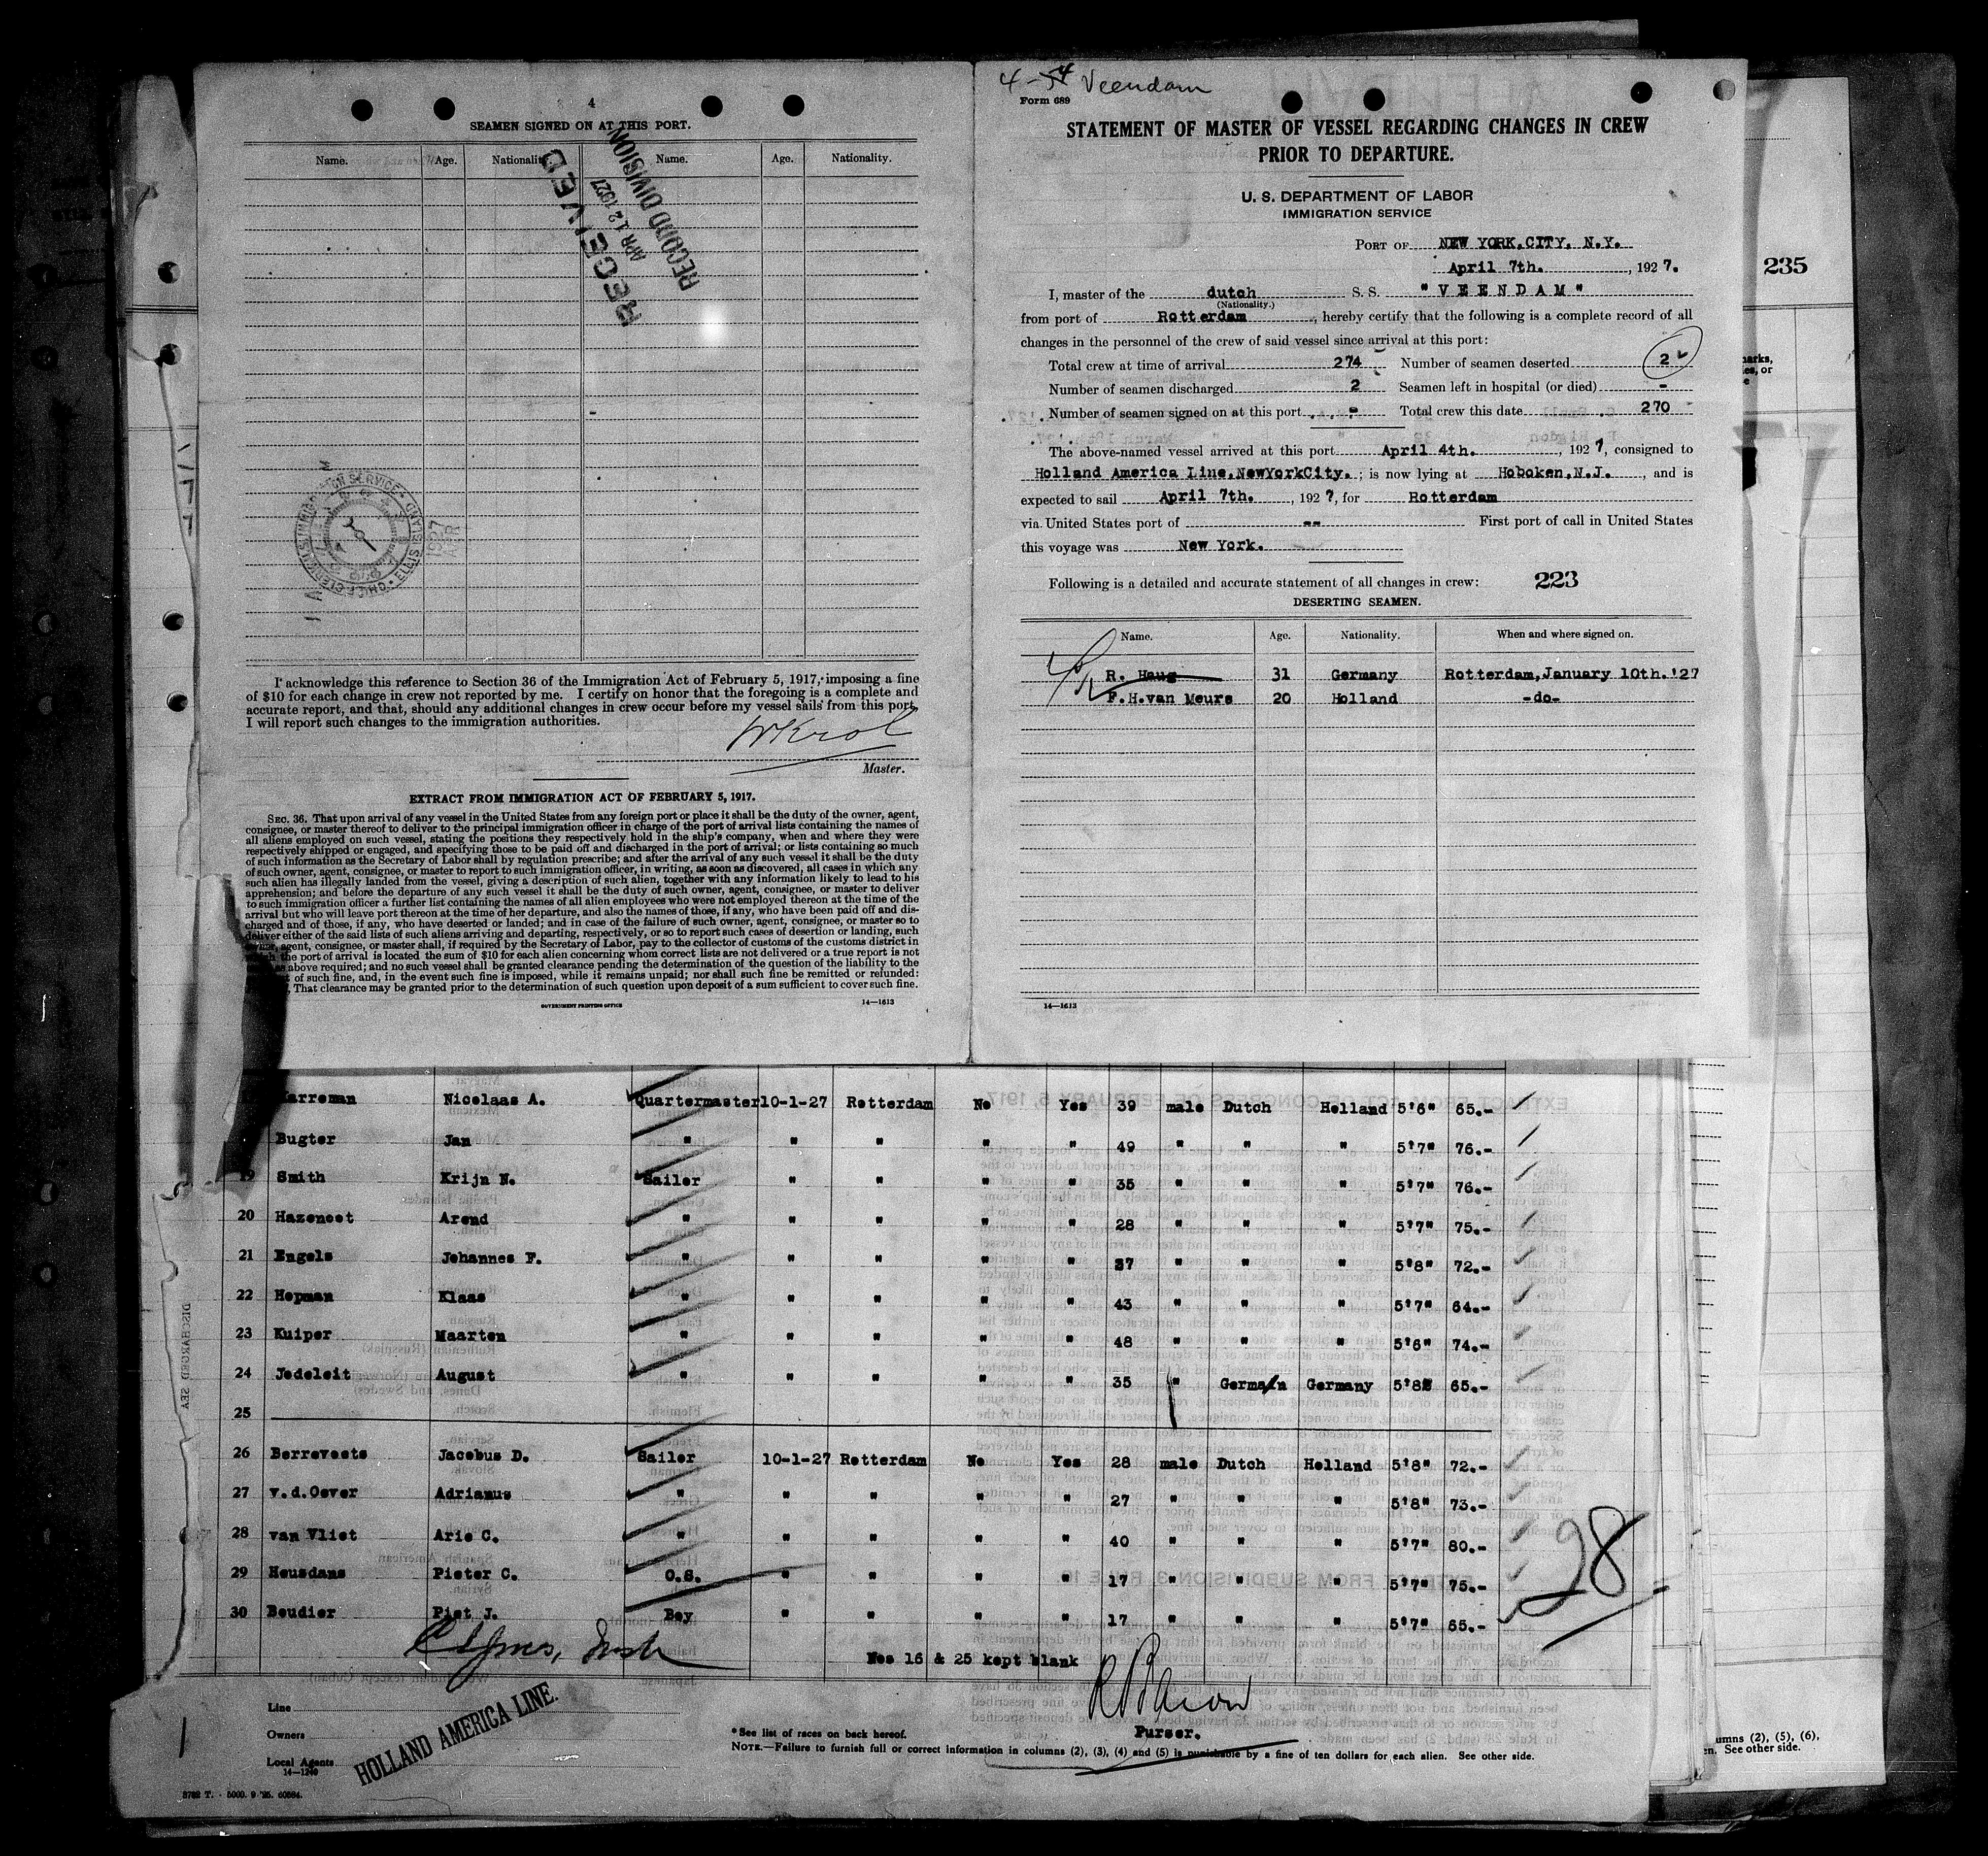 4
SEAMEN SIGNED ON AT THIS PORT.
Name. Age. Nationality. Name. Age. Nationality.
RECEIVED
APR 12 1927
RECORD DIVISION
ELLIS ISLAND
1927
APR
I acknowledge this reference to Section 36 of the Immigration Act of February 5, 1917, imposing a fine
of $10 for each change in crew not reported by me. I certify on honor that the foregoing is a complete and
accurate report, and that, should any additional changes in crew occur before my vessel sails from this port,
I will report such changes to the immigration authorities.
WKrol
Master.
EXTRACT FROM IMMIGRATION ACT OF FEBRUARY 5, 1917.
SEC. 36. That upon arrival of any vessel in the United States from any foreign port or place it shall be the duty of the owner, agent,
consignee, or master thereof to deliver to the principal immigration officer in charge of the port of arrival lists containing the names of
all aliens employed on such vessel, stating the positions they respectively hold in the ship's company, when and where they were
respectively shipped or engaged, and specifying those to be paid off and discharged in the port of arrival; or lists containing so much
of such information as the Secretary of Labor shall by regulation prescribe; and after the arrival of any such vessel it shall be the duty
of such owner, agent, consignee, or master to report to such immigration officer, in writing, as soon as discovered, all cases in which any
such alien has illegally landed from the vessel, giving a description of such alien, together with any information likely to lead to his
apprehension; and before the departure of any such vessel it shall be the duty of such owner, agent, consignee, or master to deliver
to such immigration officer a further list containing the names of all alien employees who were not employed thereon at the time of the
arrival but who will leave port thereon at the time of her departure, and also the names of those, if any, who have been paid off and dis-
charged and of those, if any, who have deserted or landed; and in case of the failure of such owner, agent, consignee, or master so to
deliver either of the said lists of such aliens arriving and departing, respectively, or so to report such cases of desertion or landing, such
agent, consignee, or master shall, if required by the Secretary of Labor, pay to the collector of customs of the customs district in
the port of arrival is located the sum of $10 for each alien concerning whom correct lists are not delivered or a true report is not
above required; and no such vessel shall be granted clearance pending the determination of the question of the liability to the
of such fine, and, in the event such fine is imposed, while it remains unpaid; nor shall such fine be remitted or refunded:
That clearance may be granted prior to the determination of such question upon deposit of a sum sufficient to cover such fine.
GOVERNMENT PRINTING OFFICE 14—1613
4 - 4 Veendam
Form 689
STATEMENT OF MASTER OF VESSEL REGARDING CHANGES IN CREW
PRIOR TO DEPARTURE.
U. S. DEPARTMENT OF LABOR
IMMIGRATION SERVICE
PORT OF NEW YORK.CITY. N.Y.
April 7th. , 1927.
I, master of the dutch S. S. "VEENDAM"
(Nationality.)
from port of Rotterdam , hereby certify that the following is a complete record of all
changes in the personnel of the crew of said vessel since arrival at this port:
Total crew at time of arrival 274 Number of seamen deserted 2
Number of seamen discharged 2 Seamen left in hospital (or died) -
Number of seamen signed on at this port - Total crew this date 270
The above-named vessel arrived at this port April 4th. , 1927, consigned to
Holland America Line,NewYorkCity. ; is now lying at Hoboken,N.J. , and is
expected to sail April 7th. , 1927, for Rotterdam
via United States port of -- First port of call in United States
this voyage was New York.
Following is a detailed and accurate statement of all changes in crew: 223
DESERTING SEAMEN.
Name. Age. Nationality. When and where signed on.
R. Haug 31 Germany Rotterdam,January 10th.'27
F.H.van Meurs 20 Holland -do-
14—1613
235
arks,
es, or
e
Karreman Nicolaas A. Quartermaster 10-1-27 Rotterdam No Yes 39 male Dutch Holland 5'6" 65.-
Bugter Jan " " " " " 49 " " " 5'7" 76.-
19 Smith Krijn N. Sailor " " " " 35 " " " 5'7" 76.-
20 Hazenoot Arend " " " " " 28 " " " 5'7" 75.-
21 Engels Johannes F. " " " " " 37 " " " 5'8" 72.-
22 Hopman Klaas " " " " " 43 " " " 5'7" 64.-
23 Kuiper Maarten " " " " " 48 " " " 5'6" 74.-
24 Jedeleit August " " " " " 35 " German Germany 5'8" 65.-
25
26 Berrevoets Jacobus D. Sailor 10-1-27 Rotterdam No Yes 28 male Dutch Holland 5'8" 72.-
27 v.d.Oever Adrianus " " " " " 27 " " " 5'8" 73.-
28 van Vliet Arie C. " " " " " 40 " " " 5'7" 80.-
29 Heusdans Pieter C. O.S. " " " " 17 " " " 5'7" 75.-
30 Boudier Piet J. Boy " " " " 17 " " " 5'7" 65.-
28
Nos 16 & 25 kept blank
Line
Owners
Local Agents
14—1240
HOLLAND AMERICA LINE.
*See list of races on back hereof.
Purser.
NOTE.—Failure to furnish full or correct information in columns (2), (3), (4) and (5) is punishable by a fine of ten dollars for each alien. See other side.
umns (2), (5), (6),
en. See other side.